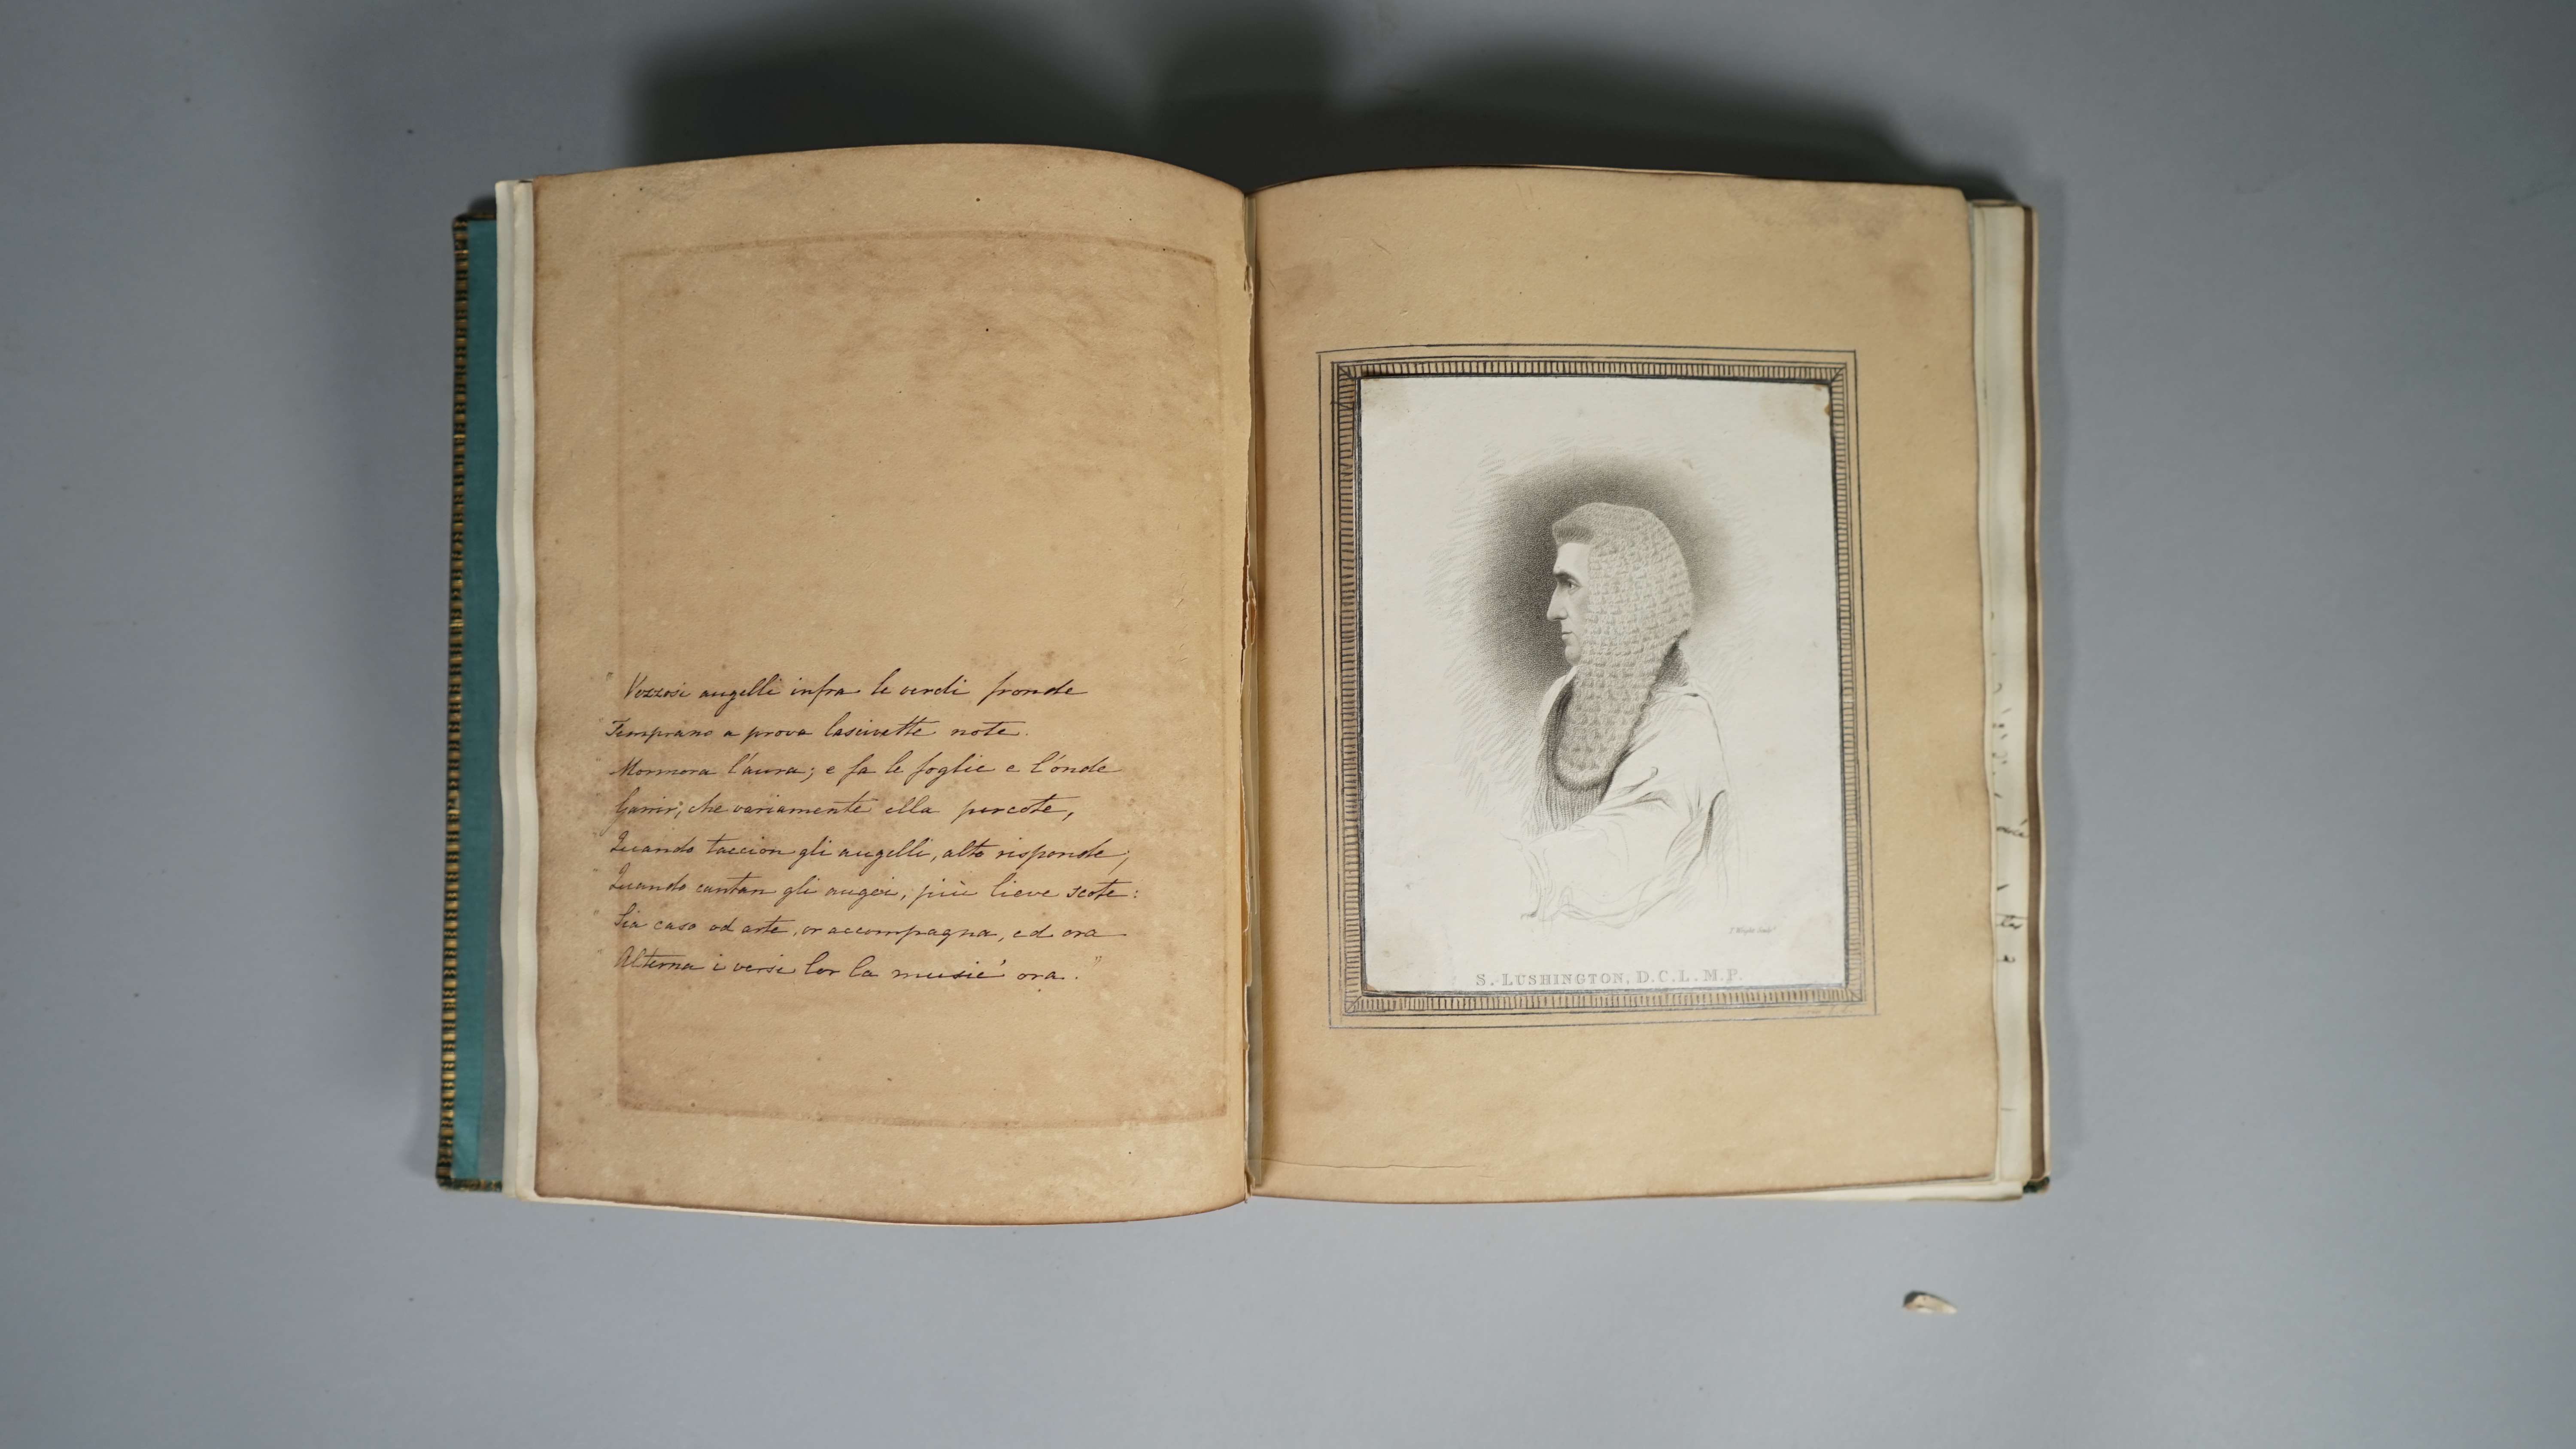 "Vezzosi augelli infra le verdi fronde
Temprano a prova lascivette note.
Mormora l'aura; e fa le foglie e l'onde
Garrir; che variamente ella percote,
Quando taccion gli augelli, alto risponde;
Quando cantan gli augei, più lieve scote:
Sia caso od arte, or accompagna, ed ora
Alterna i versi lor la music' ora."
S. LUSHINGTON, D.C.L. M.P.